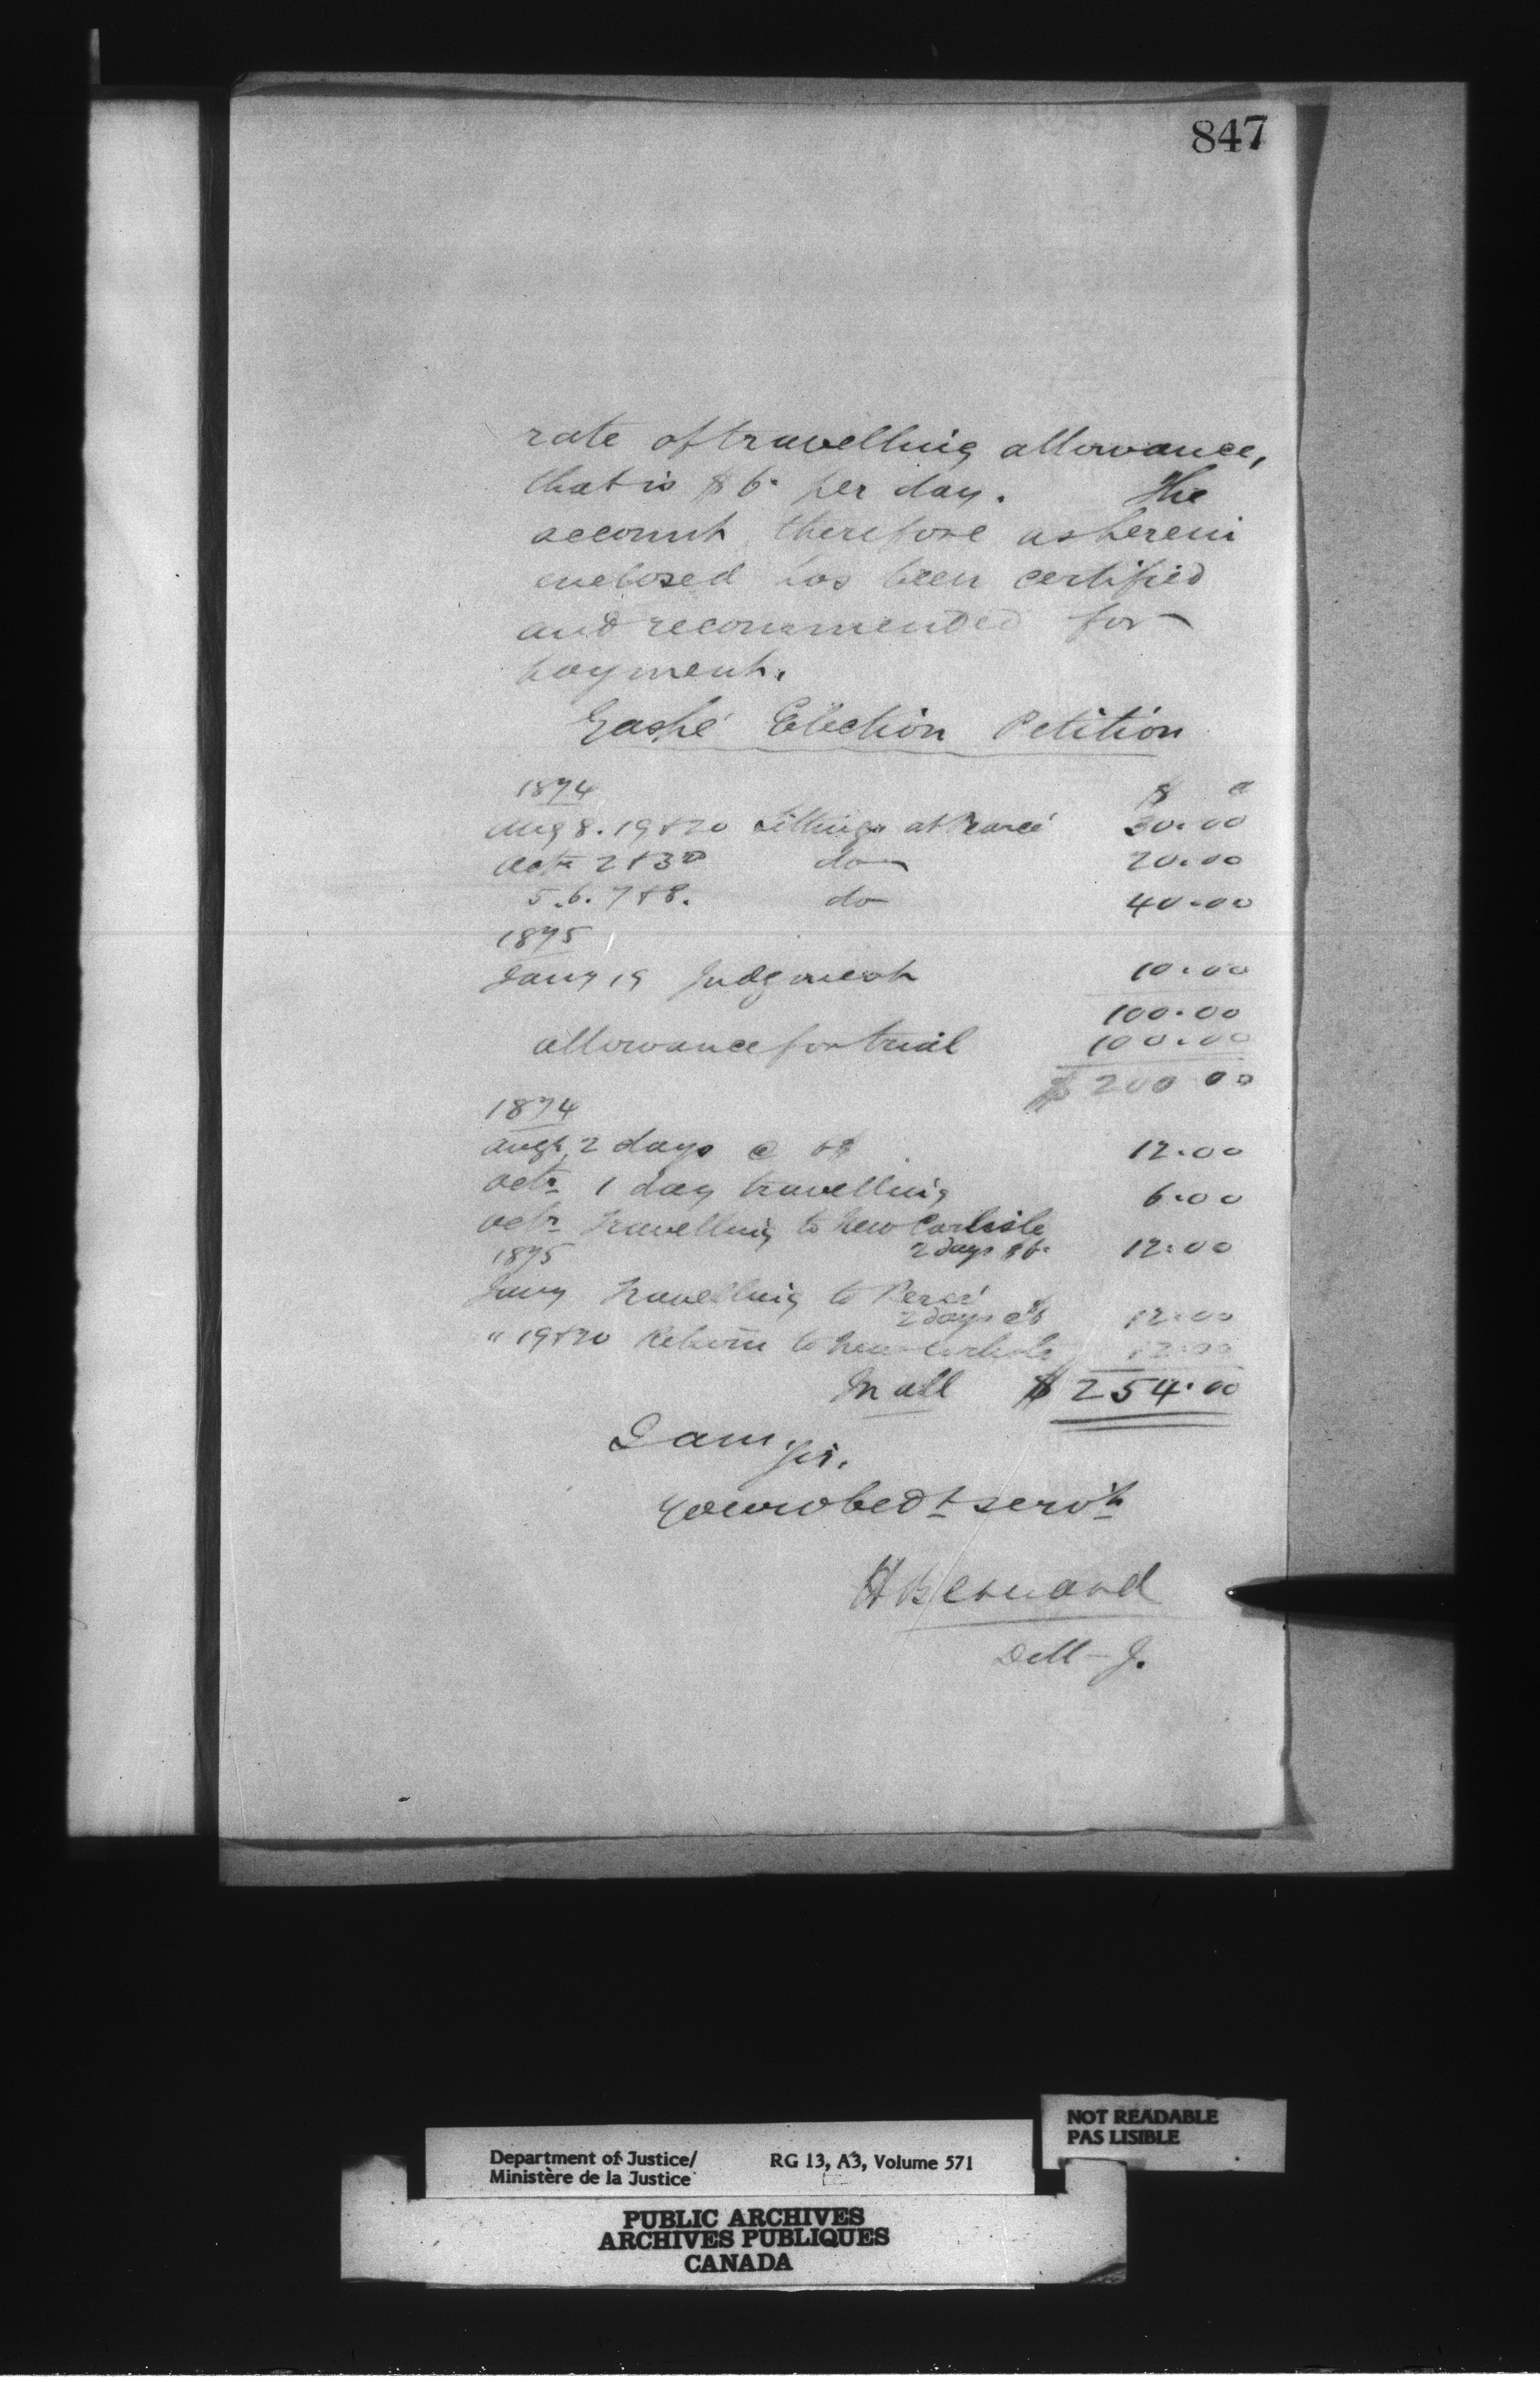 847
rate of travelling allowance,
that is $6. per day. The
account therefore as herein
enclosed has been certified
and recommended for
payment.
Gaspé Election Petition
1874 $ c
Aug 8. 19 & 20 Sittings at Percé 30.00
Octr 2 & 3d do 20.00
5. 6. 7 & 8. do 40.00
1875
Jany 19 Judgment 10.00
100.00
allowance for trial 100.00
$200.00
1874
Augt 2 days @ 6$ 12.00
Octr 1 day travelling 6.00
Octr travelling to New Carlisle
1875 2 days $6. 12.00
Jany travelling to Percé
2 days @ $6 12.00
" 19 & 20 Return to New Carlisle 12.00
In all $254.00
I am, Sir.
Your obedt servt
H Bernard
D M J.
NOT READABLE
PAS LISIBLE
Department of Justice/ RG 13, A3, Volume 571
Ministère de la Justice
PUBLIC ARCHIVES
ARCHIVES PUBLIQUES
CANADA